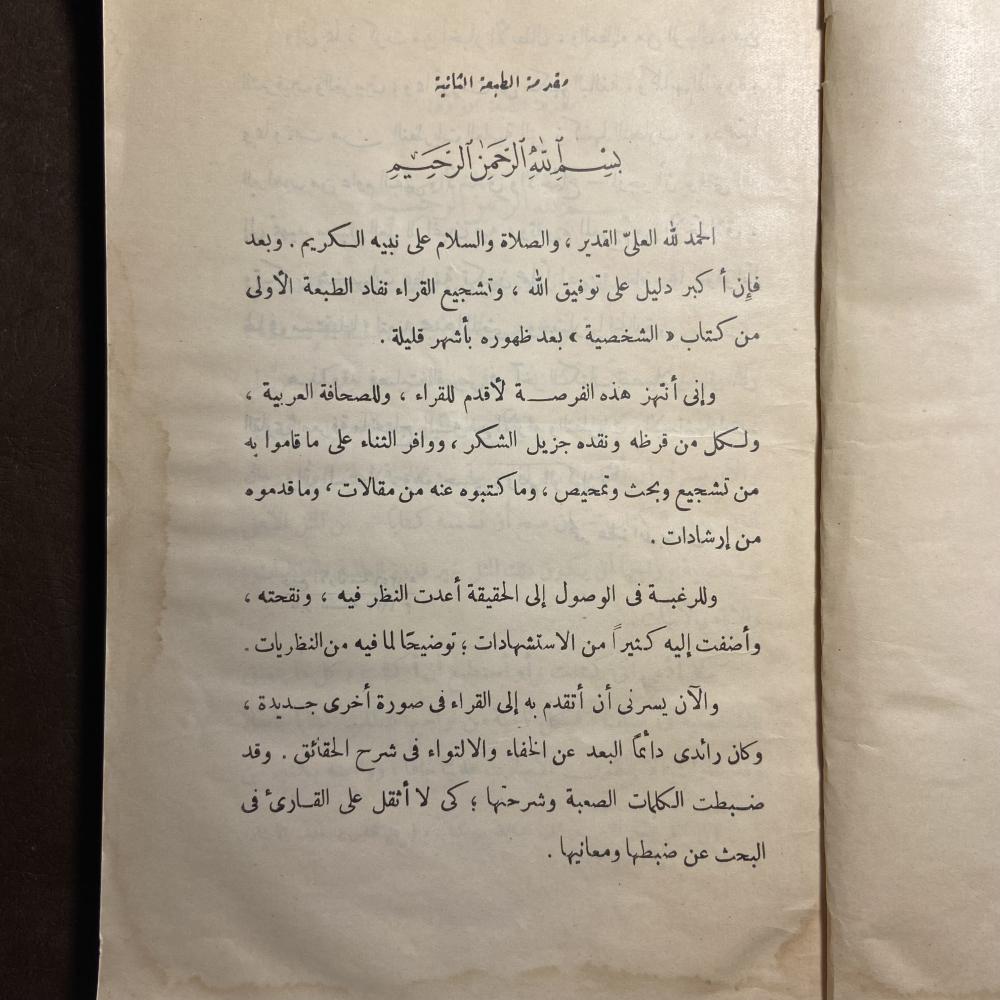 مقدمة الطبعة الثانية
بسم الله الرحمن الرحيم
الحمد لله العلىّ القدير ، والصلاة والسلام على نبيه الكريم . وبعد
فإن أكبر دليل على توفيق الله ، وتشجيع القراء نفاد الطبعة الأولى
من كتاب « الشخصية » بعد ظهوره بأشهر قليلة .
وإنى أنتهز هذه الفرصة لأقدم للقراء ، وللصحافة العربية ،
ولكل من قرظه ونقده جزيل الشكر ، ووافر الثناء على ما قاموا به
من تشجيع وبحث وتمحيص ، وما كتبوه عنه من مقالات ، وما قدموه
من إرشادات .
وللرغبة فى الوصول إلى الحقيقة أعدت النظر فيه ، ونقحته ،
وأضفت إليه كثيراً من الاستشهادات ؛ توضيحًا لما فيه من النظريات .
والآن يسرنى أن أتقدم به إلى القراء فى صورة أخرى جديدة ،
وكان رائدى دائمًا البعد عن الخفاء والالتواء فى شرح الحقائق . وقد
ضبطت الكلمات الصعبة وشرحتها ؛ كى لا أثقل على القارئ فى
البحث عن ضبطها ومعانيها .